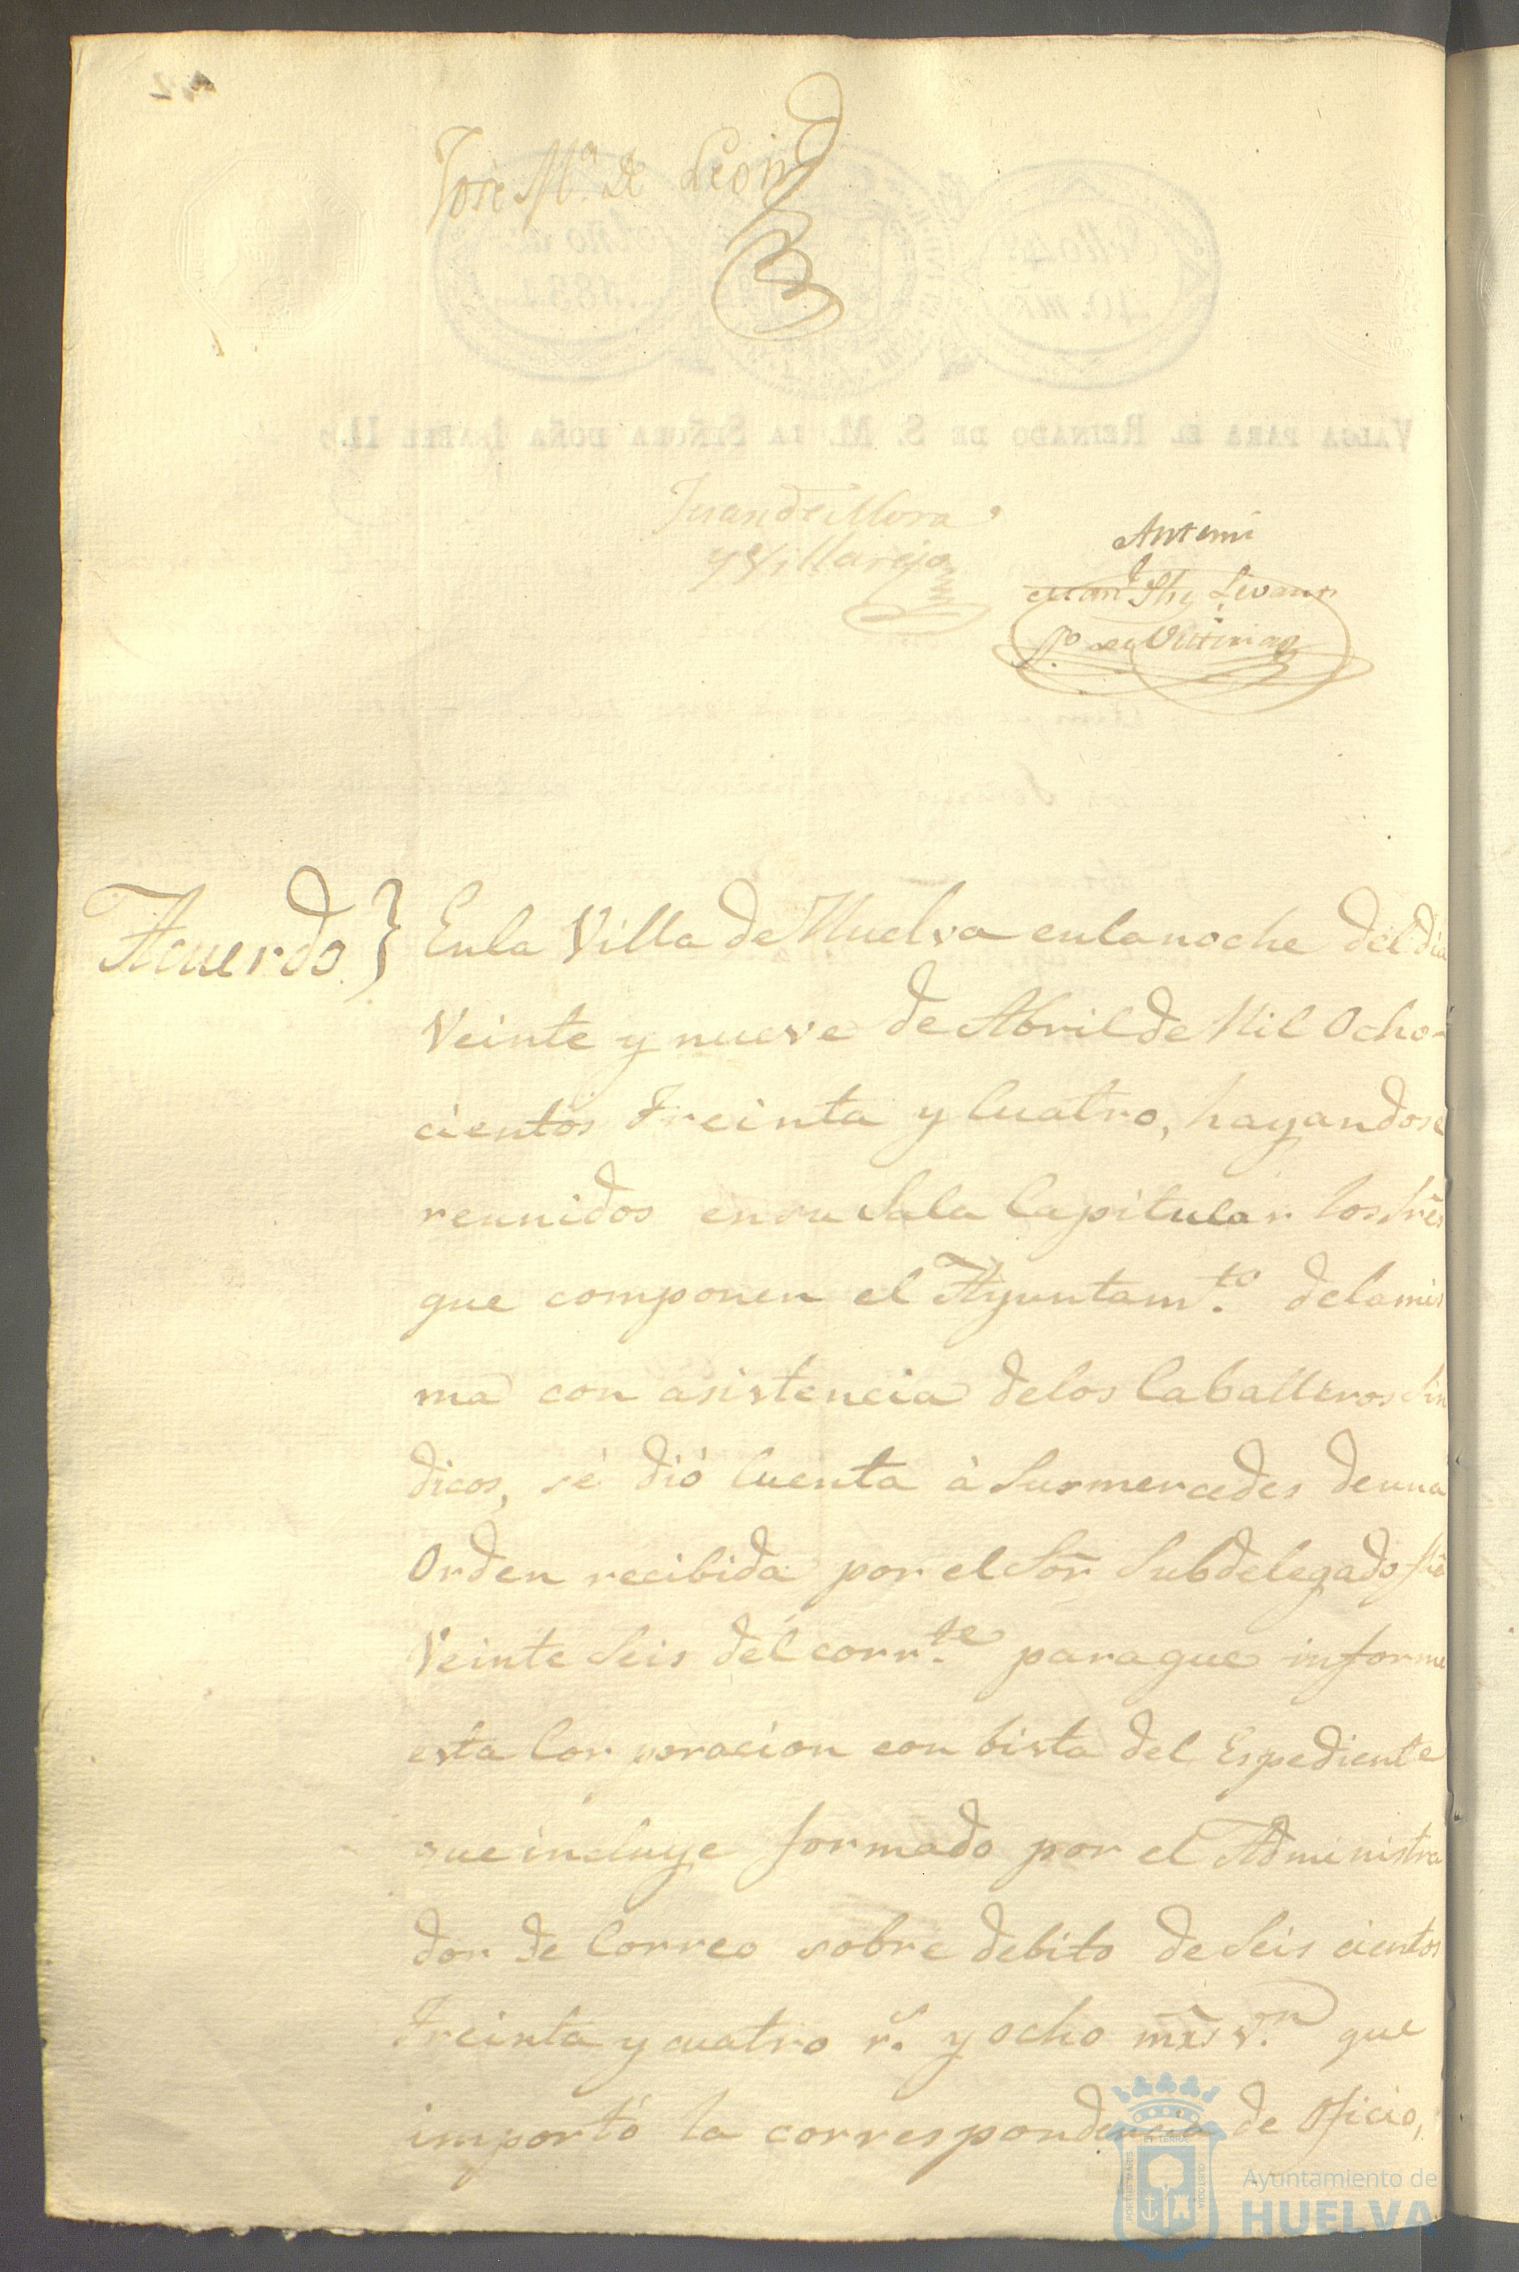 Jose M.ª de Leon
Juan de Mora
y Villarejo
Ante mi
Acuerdo } En la Villa de Huelva en la noche del dia
Veinte y nueve de Abril de Mil Ocho-
cientos treinta y Cuatro, hayandose
reunidos en su Sala Capitular los Sres
que componen el Ayuntam.to de la mis
ma con asistencia de los Caballeros Sin
dicos, sé dió Cuenta à Sus mercedes de una
Orden recibida por el Sõr Subdelegado fha
Veinte Seis del corr.te para que informe
esta Corporacion con bista del Espediente
que incluye formado por el Administra
dor de Correo sobre debito de Seis cientos
Treinta y cuatro r.s y ocho mrs v.n que
importó la correspondencia de Oficio,
Ayuntamiento de
HUELVA